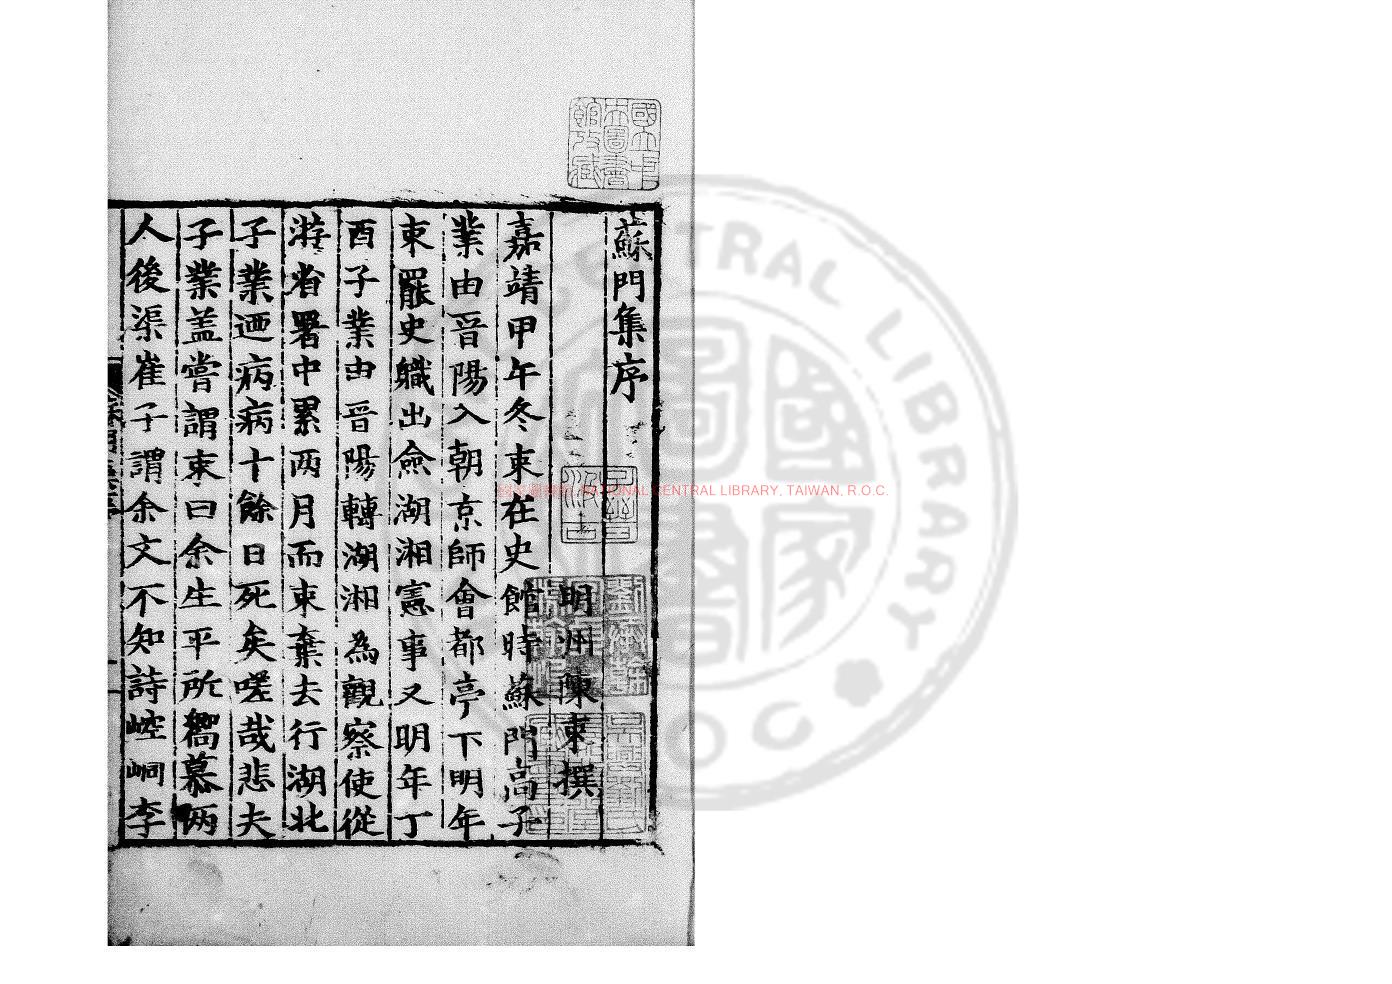 蘇門集序
明州陳束撰
嘉靖甲午冬束在史館時蘇門高子
業由晉陽入朝京師會都亭下明年
束罷史職出僉湖湘憲事又明年丁
酉子業由晉陽轉湖湘為觀察使從
游省署中累兩月而束棄去行湖北
子業迺病病十餘日死矣嗟哉悲夫
子業盖嘗謂束曰余生平所嚮慕兩
人後渠崔子謂余文不知詩崆峒李
國立中央圖書館收藏
NATIONAL CENTRAL LIBRARY, TAIWAN, R.O.C.
CENTRAL LIBRARY